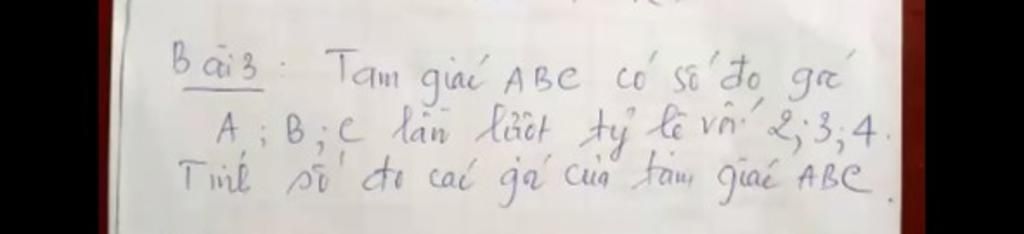 Bài 3 : Tam giác ABC có số đo góc
A ; B ; C lần lượt tỷ lệ với 2 ; 3 ; 4 .
Tính số đo các góc của tam giác ABC .